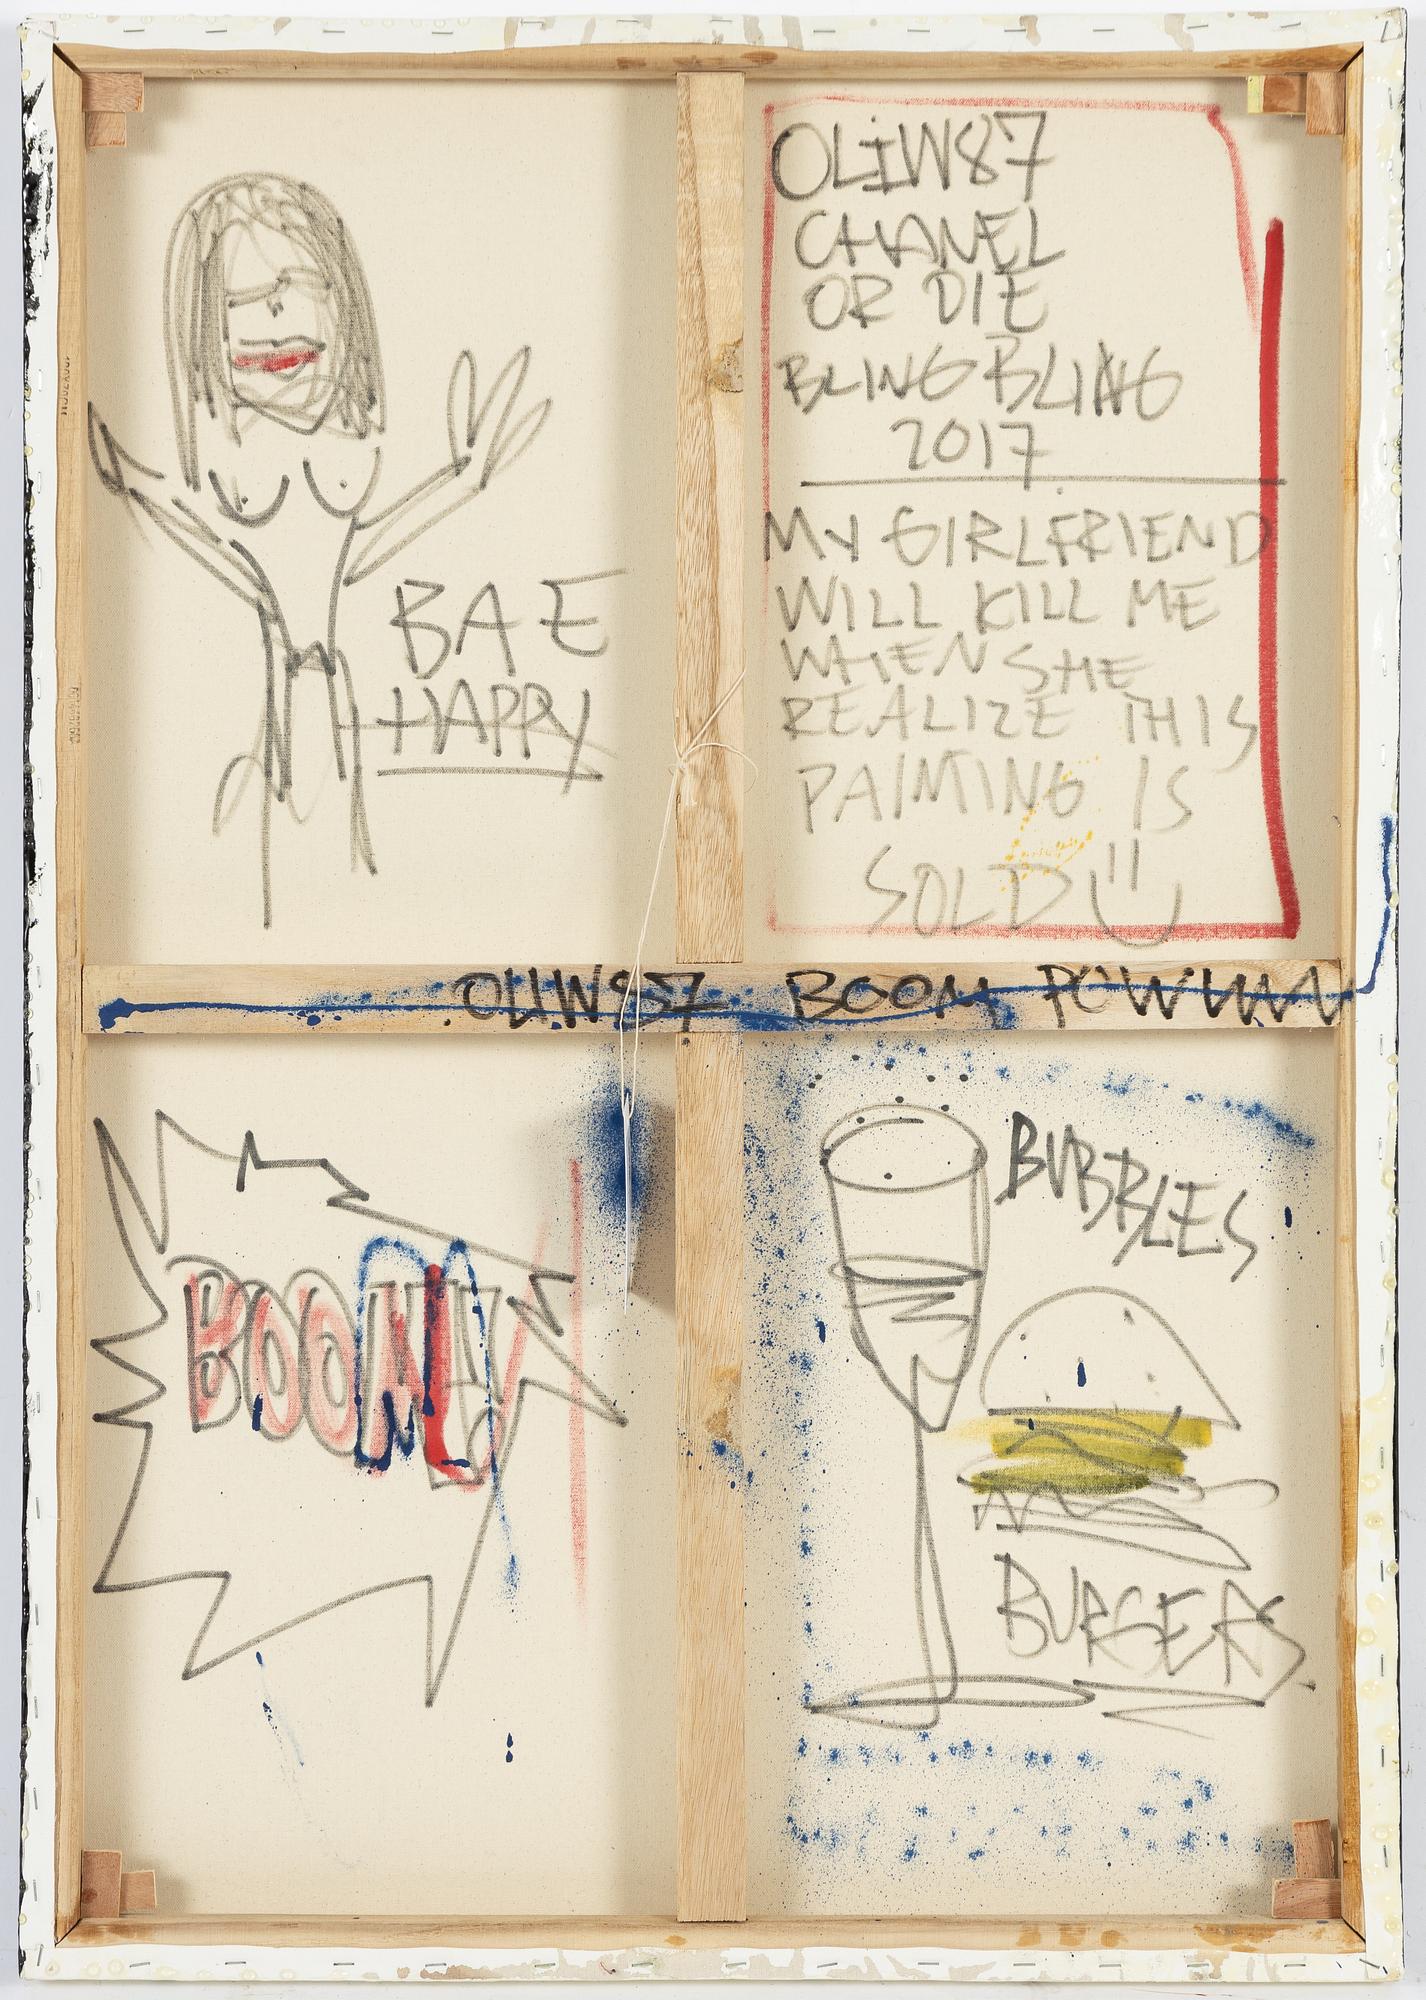 OLIW87
CHANEL
OR DIE
BLING BLING
2017
MY GIRLFRIEND
WILL KILL ME
WHEN SHE
REALIZE THIS
PAINTING IS
SOLD
BAE
HAPPY
OLIW87 BOOM POWWW
BUBBLES
BURGERS.